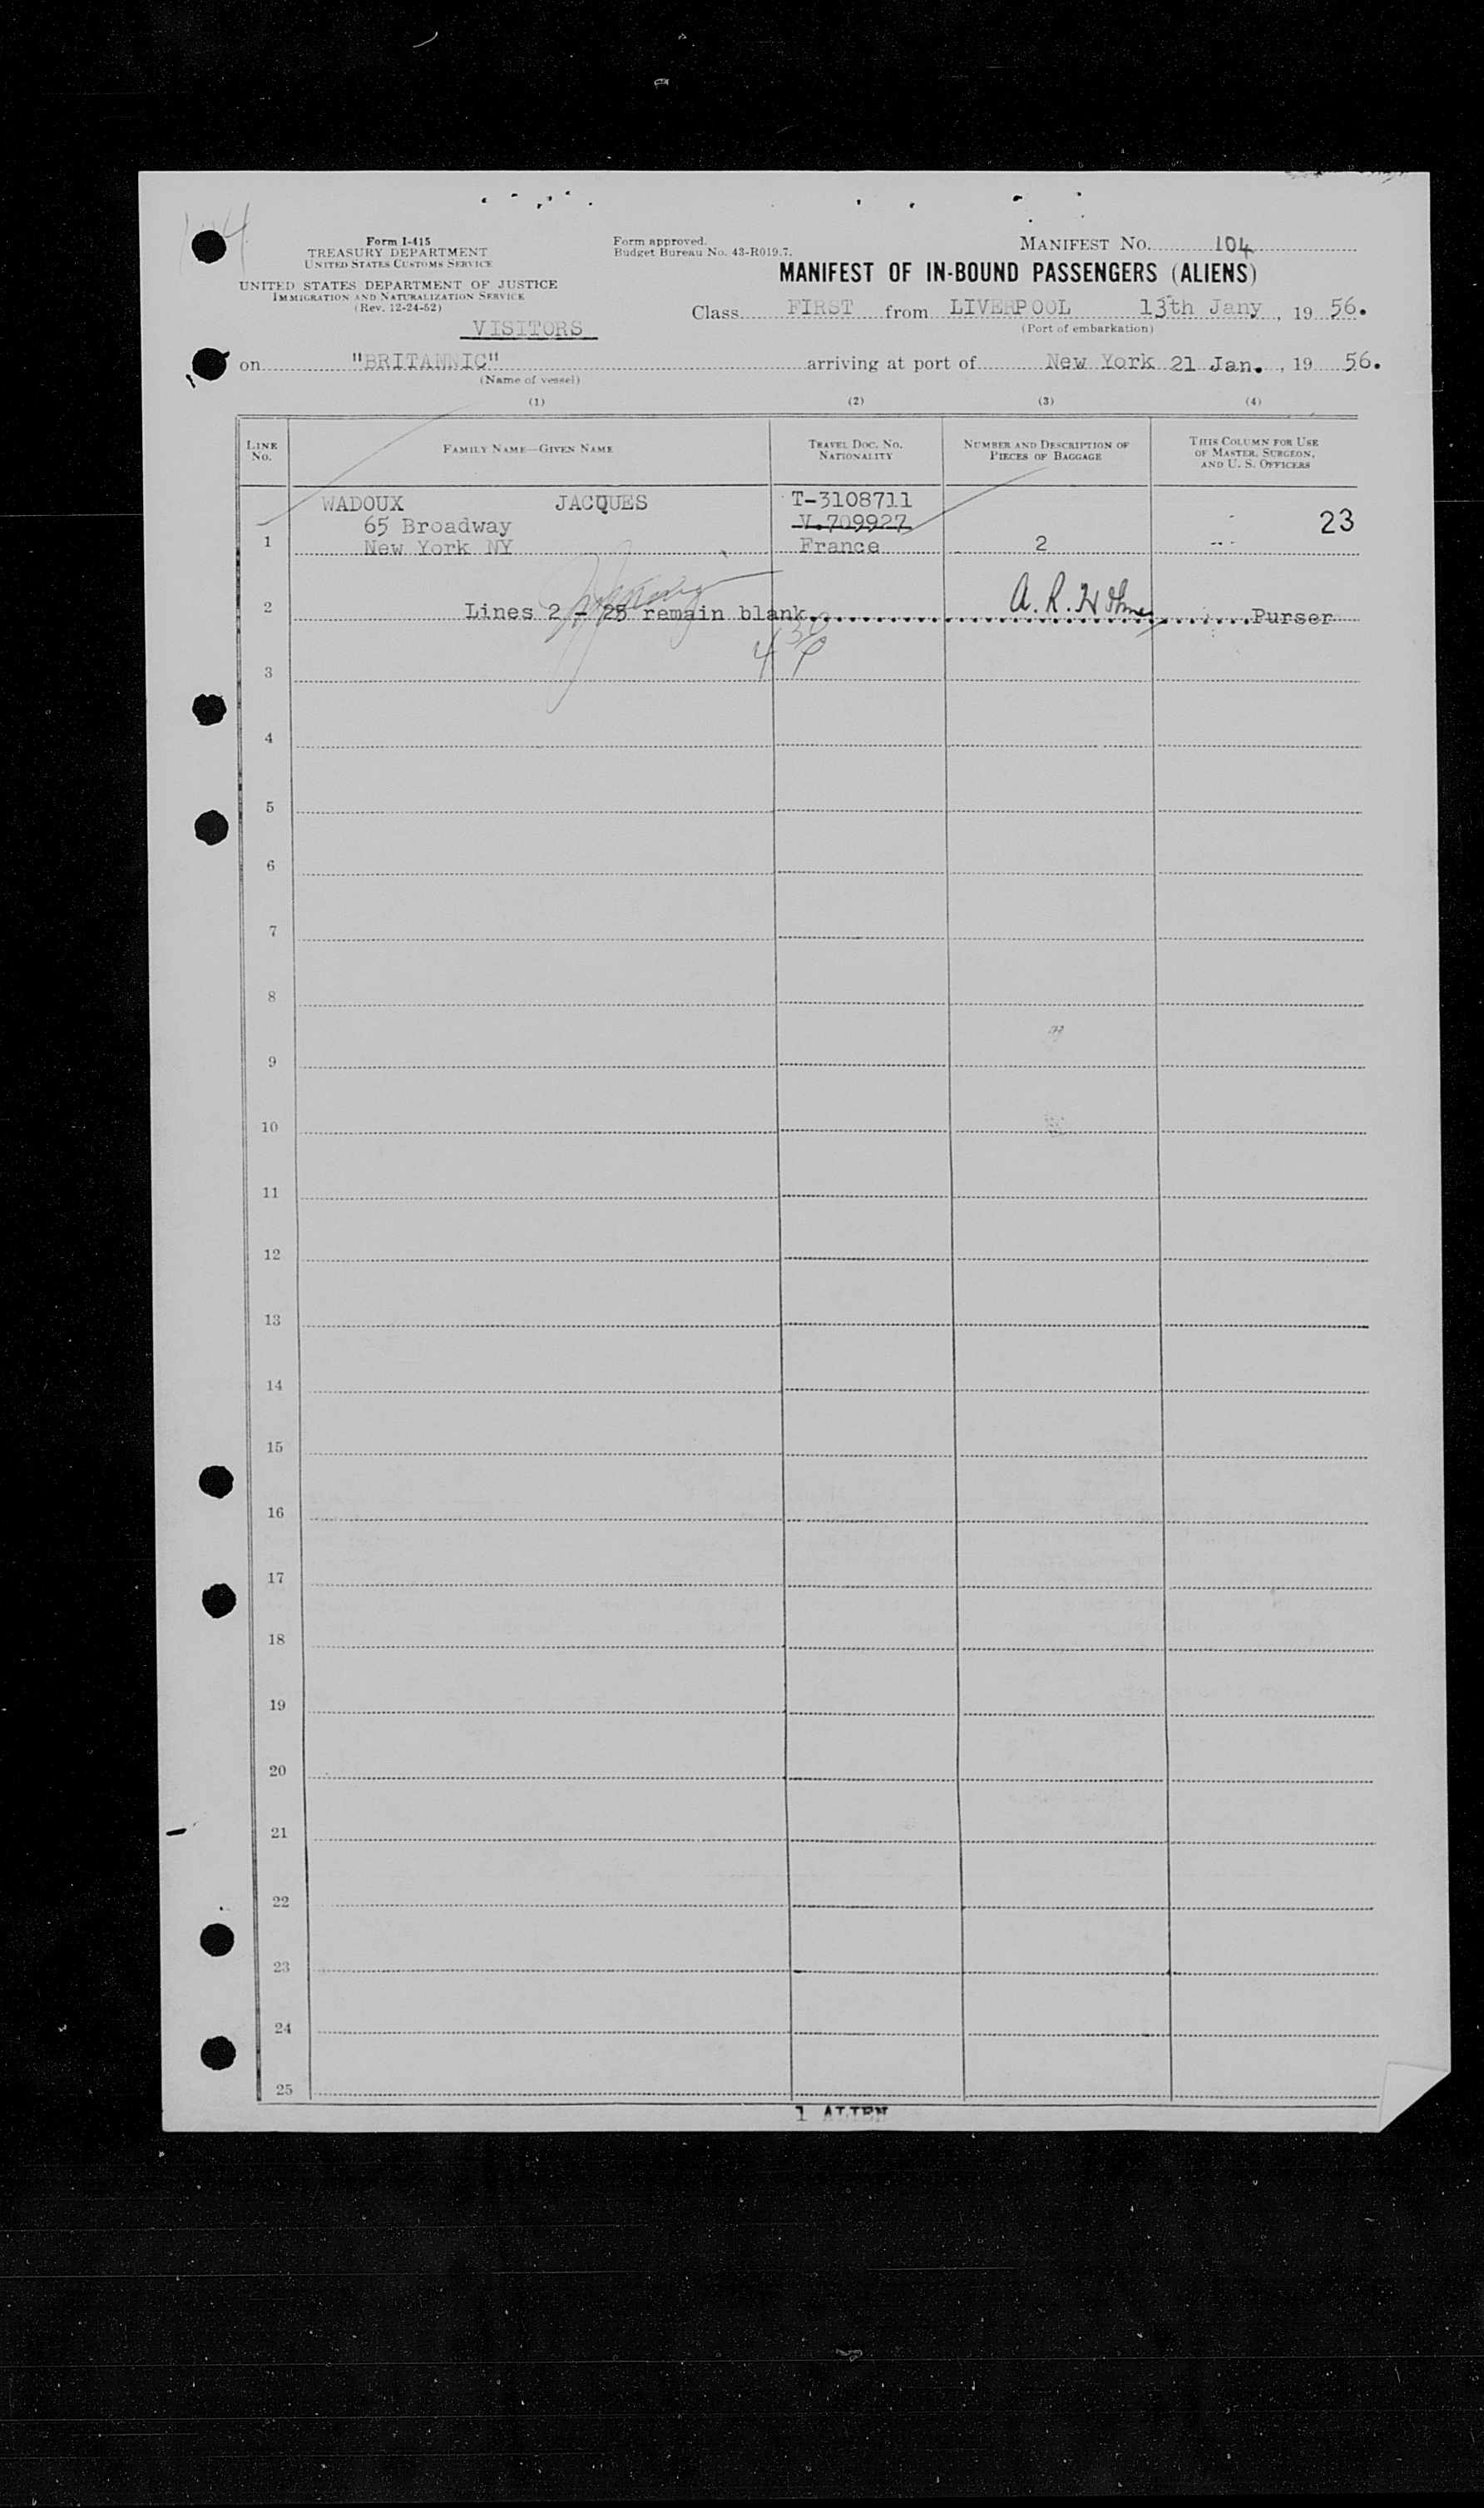 104
Form I-415
TREASURY DEPARTMENT
UNITED STATES CUSTOMS SERVICE
UNITED STATES DEPARTMENT OF JUSTICE
IMMIGRATION AND NATURALIZATION SERVICE
(Rev. 12-24-52)
VISITORS
Form approved.
Budget Bureau No. 43-R019.7.
MANIFEST NO. 104
MANIFEST OF IN-BOUND PASSENGERS (ALIENS)
Class FIRST from LIVERPOOL 13th Jany, 19 56.
(Port of embarkation)
on "BRITANNIC" arriving at port of New York 21 Jan., 19 56.
(Name of vessel)
(1) (2) (3) (4)
LINE NO. FAMILY NAME—GIVEN NAME TRAVEL DOC. NO. NATIONALITY NUMBER AND DESCRIPTION OF PIECES OF BAGGAGE THIS COLUMN FOR USE OF MASTER, SURGEON, AND U. S. OFFICERS
WADOUX JACQUES T-3108711
65 Broadway V.709927 23
1 New York NY France 2
2 Lines 2 - 25 remain blank. A. R. Purser
3
4
5
6
7
8
9
10
11
12
13
14
15
16
17
18
19
20
21
22
23
24
25
1 ALIEN